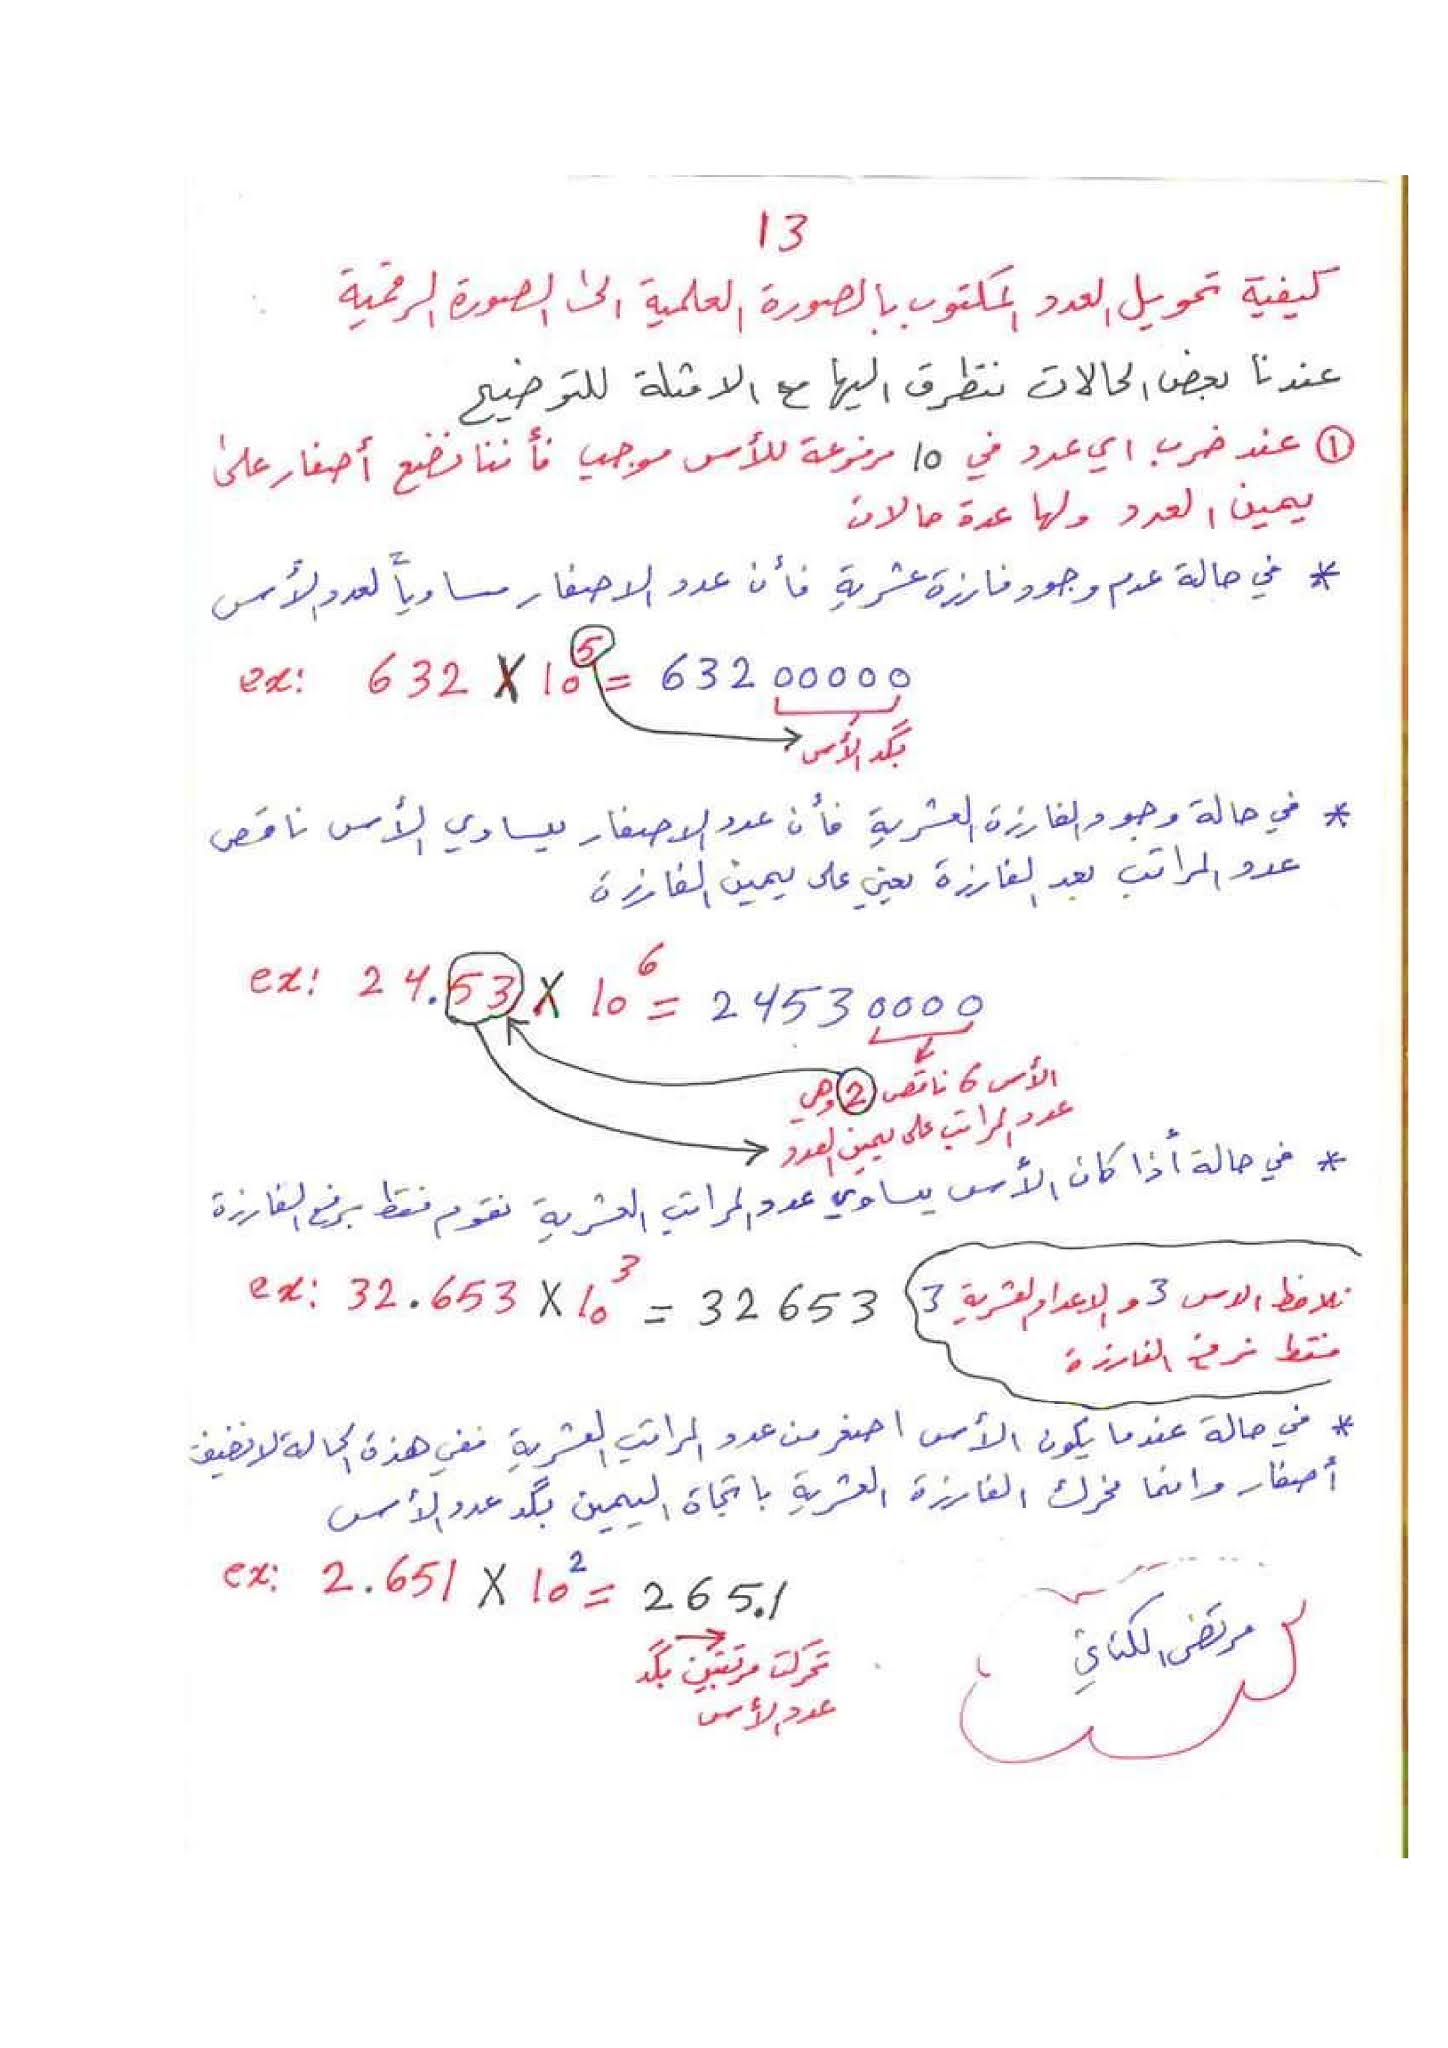 13
كيفية تحويل العدد المكتوب بالصورة العلمية الى الصورة الرقمية
عندنا بعض الحالات نتطرق اليها مع الامثلة للتوضيح
① عند ضرب اي عدد في 10 مرفوعة للأس موجب فأننا نضع أصفار على
يمين العدد ولها عدة حالات
* في حالة عدم وجود فارزة عشرية فأن عدد الاصفار مساوياً لعدد الأس
ex: 632 X 10⁵ = 63200000
بگد الأس
* في حالة وجود الفارزة العشرية فأن عدد الاصفار يساوي الأس ناقص
عدد المراتب بعد الفارزة يعني على يمين الفارزة
ex: 24.53 X 10⁶ = 24530000
الأس 6 ناقص 2 وهي
عدد المراتب على يمين العدد
* في حالة أذا كان الأس يساوي عدد المراتب العشرية نقوم فقط برفع الفارزة
ex: 32.653 X 10³ = 32653
نلاحظ الاس 3 و الاعداد العشرية 3
فقط نرفع الفارزة
* في حالة عندما يكون الأس اصغر من عدد المراتب العشرية ففي هذة الحالة لانضيف
أصفار وانما نحرك الفارزة العشرية باتجاة اليمين بگد عدد الأس
ex: 2.651 X 10² = 265.1
تحركت مرتبتين بگد
عدد الأس
مرتضى الكناني